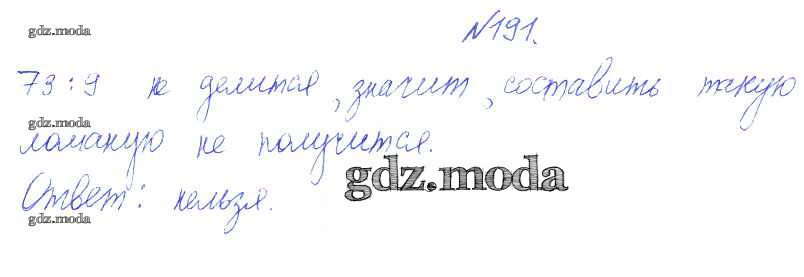 gdz.moda
№191.
73:9 не делится, значит, составить такую
gdz.moda
ломаную не получится.
gdz.moda
Ответ: нельзя.
gdz.moda